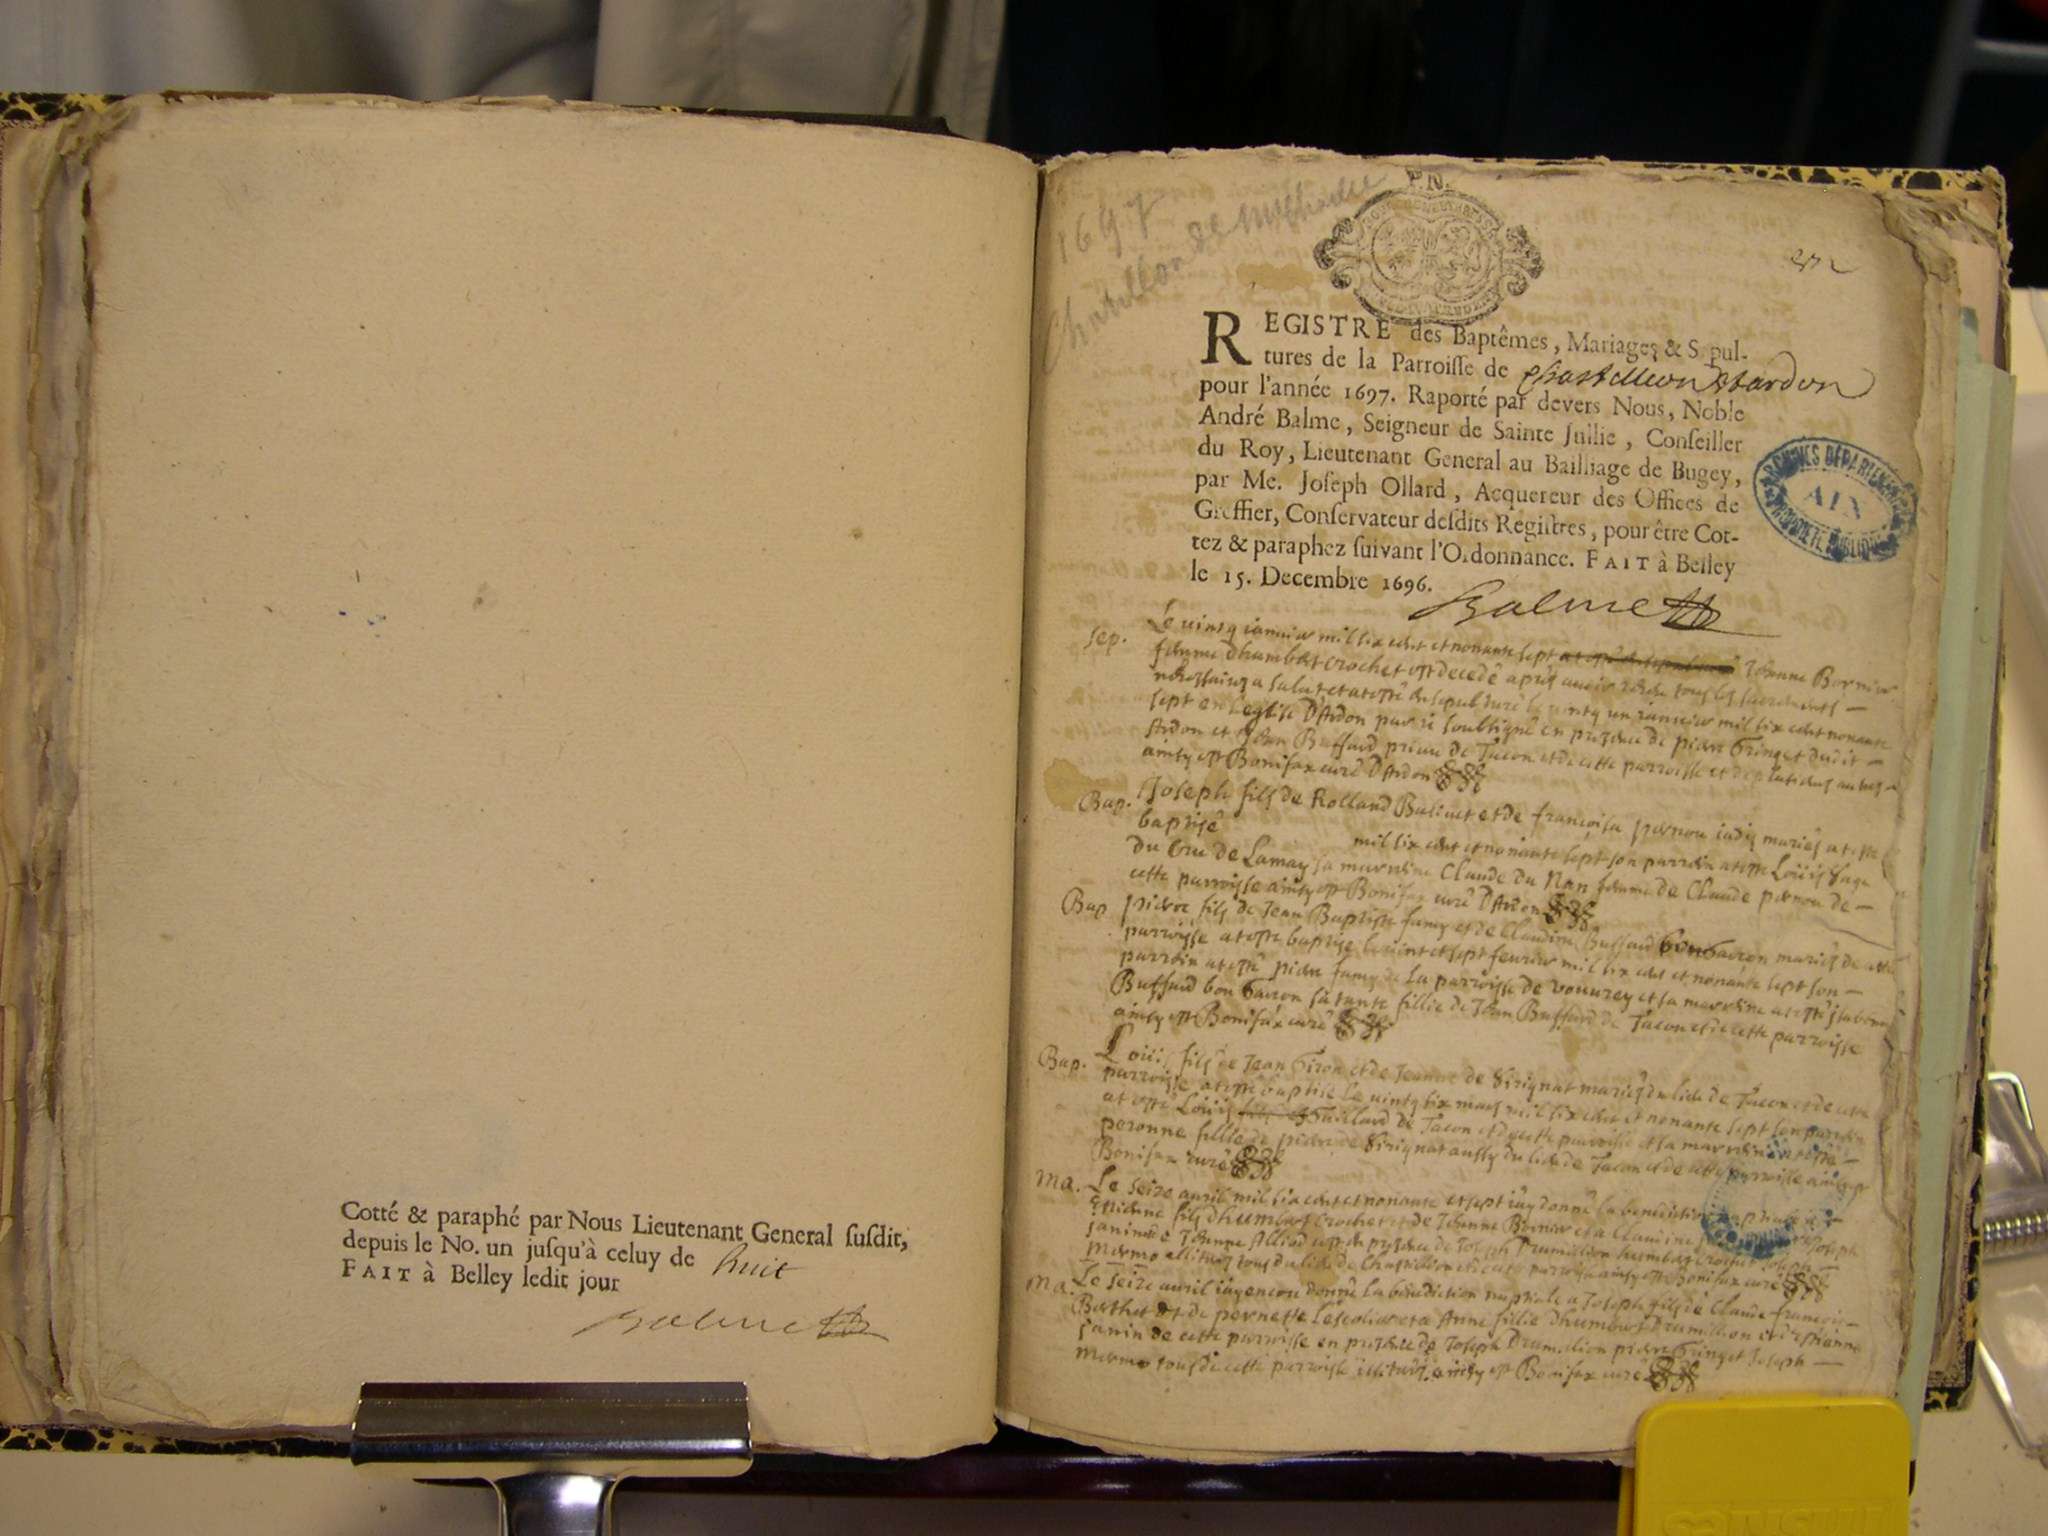 Cotté & paraphé par Nous Lieutenant General susdit,
depuis le No. un jusqu'à celuy de huit
FAIT à Belley ledit jour
Balme
1697
Chatillon de Michaille
un
REGISTRE des Baptêmes, Mariages & Sepul-
tures de la Parroisse de Chastillion Dardon
pour l'année 1697. Raporté par devers Nous, Noble
André Balme, Seigneur de Sainte Jullie, Conseiller
du Roy, Lieutenant General au Bailliage de Bugey,
par Me. Joseph Ollard, Acquereur des Offices de
Greffier, Conservateur desdits Registres, pour être Cot-
tez & paraphez suivant l'Ordonnance. FAIT à Belley
le 15. Decembre 1696.
Balme
ARCHIVES DÉPARTEMENTALES
AIN
PROPRIÉTÉ PUBLIQUE
Sep. Le vintg janvier mil six cent et nonante sept Jeanne Bornier
femme dhumbert Crochet est decedé après avoir tous les sacrements
necessaires a salut et a esté ensepulturé le vintg un janvier mil six cent nonante
sept en leglise Dardon par je soubsigné en presence de pierre Gringet dudit
Ardon et Jean Buffard prieur de Tacon et de cette parroisse et plusieurs autres
ainsy est Bonifax curé Dardon
Bap. Joseph fils de Rolland et de françoisa pernou mariés a esté
baptisé mil six cent et nonante sept son parrein a esté Loüis
du Cru de Lamay sa marreine Claude du Nan femme de Claude pernou de
cette parroisse ainsy est Bonifax curé Dardon
Bap pierre fils de Jean Baptiste famy et de Claudine Buffard bon Gacon mariés de cette
parroisse a esté baptisé le vint et sept fevrier mil six cent et nonante sept son
parrein a esté pierre famy de La parroisse de vouvrey et sa marreine a esté
Buffard bon Gacon sa tante fillie de Jean Buffard de Tacon et de cette parroisse
ainsy est Bonifax curé
Bap. Loüis fils de Jean Giron et de Jeanne de Sirignat mariés du lieu de Tacon et de cette
parroisse a esté baptisé Le vintg six mars mil six cent et nonante sept son parrein
a esté Loüis Taillard de Tacon et de cette parroisse et sa marreine a esté
peronne fillie de pierre de Sirignat aussy du lieu de Tacon et de cette parroisse ainsy est
Bonifax curé
Ma. Le seize avril mil six cent et nonante et sept jay donné la benediction nuptiale a
Estienne fils dhumbert Crochet et de Jeanne Bornier et a Claudine Joseph
Janin et de Jeanne Alliod en presence de Joseph Drumillion humbert Crochet Joseph
Mermo tous du lieu de Chastillion et de cette parroisse ainsy est Bonifax curé
Ma. Le seize avril jay encor donné La benediction nuptiale a Joseph fils de Claude françois
Berthet et de pernette Lescolier et a Anne fillie dhumbert Drumillion et destienna
Janin de cette parroisse en presence de Joseph Drumilion pierre Gringet Joseph
Mermo tous de cette parroisse ainsy est Bonifax curé